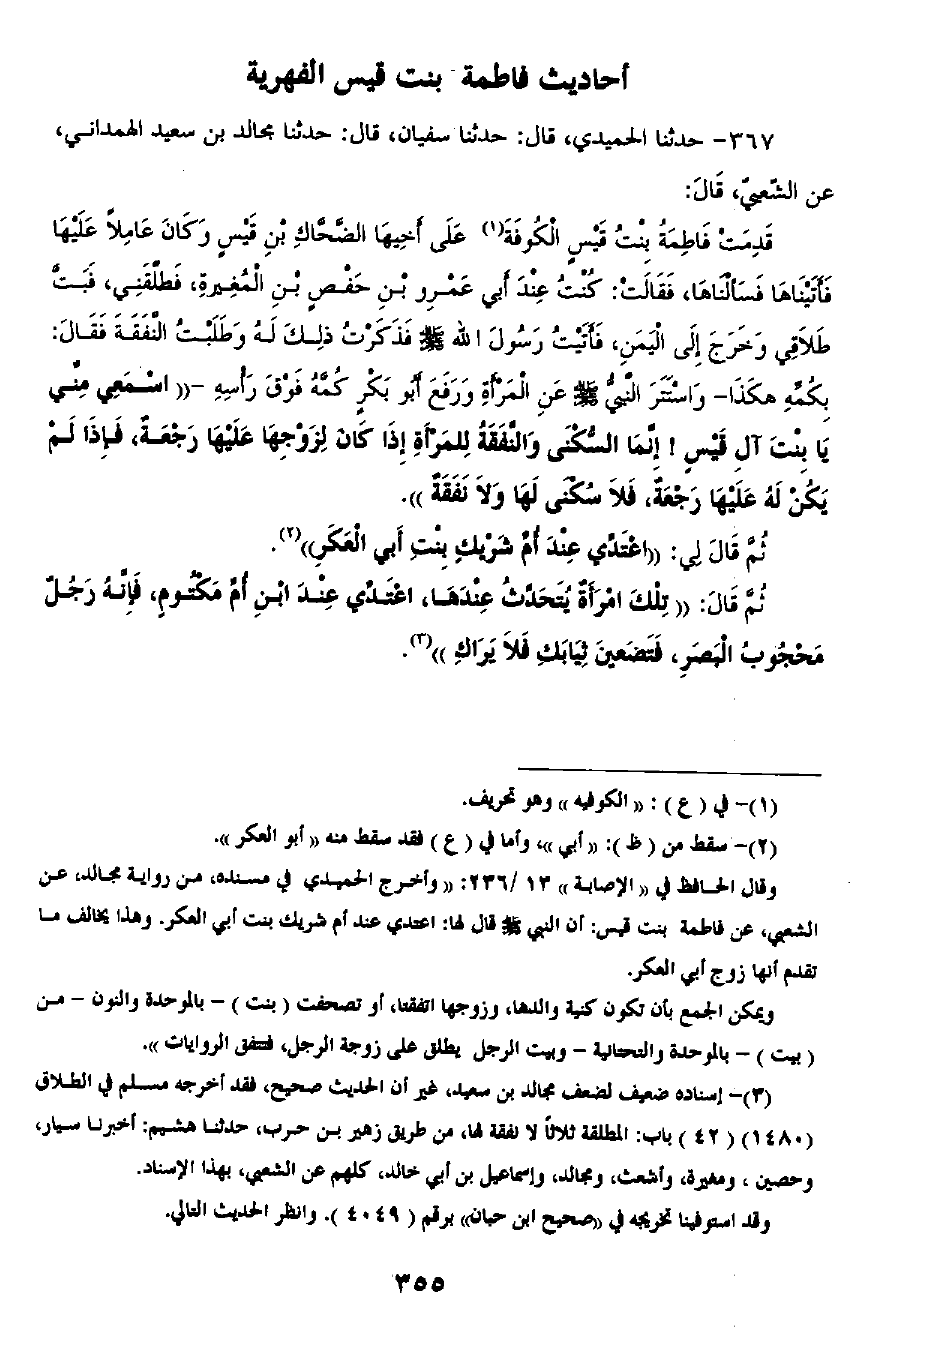 أحاديث فاطمة بنت قيس الفهرية
٣٦٧- حدثنا الحميدي، قال: حدثنا سفيان، قال: حدثنا مجالد بن سعيد الهمداني،
عن الشَّعبيّ، قَالَ:
قَدِمَتْ فَاطِمَةُ بِنْتُ قَيْسٍ الْكُوفَةَ(١) عَلَى أَخِيهَا الضَّحَّاكِ بْنِ قَيْسٍ وَكَانَ عَامِلاً عَلَيْهَا
فَأَتَيْنَاهَا فَسَأَلْنَاهَا، فَقَالَتْ: كُنْتُ عِنْدَ أَبي عَمْرِو بْنِ حَفْصِ بْنِ الْمُغِيرةِ، فَطلَّقَنِي، فَبَتَّ
طَلاَقِي وَخَرَجَ إِلَى الْيَمَنِ، فَأَتَيْتُ رَسُولَ الله ﷺ فَذَكَرْتُ ذلِكَ لَهُ وَطَلَبْتُ النَّفَقَةَ فَقَالَ:
بِكُمِّهِ هكَذَا- وَاسْتَتَرَ النَّبِيُّ ﷺ عَنِ الْمَرْأَةِ وَرَفَعَ أَبُو بَكْرٍ كُمَّهُ فَوْقَ رَأْسِهِ -(( اسْمَعِي مِنِّي
يَا بِنْتَ آلِ قَيْسٍ ! إِنَّمَا السُّكْنَى وَالنَّفَقَةُ لِلمَرْأَةِ إِذَا كَانَ لِزَوْجِهَا عَلَيْهَا رَجْعَةٌ، فَإِذَا لَمْ
يَكُنْ لَهُ عَلَيْهَا رَجْعَةٌ، فَلاَ سُكْنَى لَهَا وَلاَ نَفَقَةٌ )).
ثُمَّ قَالَ لِي: ((اعْتَدِّي عِنْدَ أُمِّ شَرْيكٍ بِنْتِ أَبي الْعَكَرِ))(٢).
ثُمَّ قَالَ: (( تِلْكَ امْرَأَةٌ يُتَحَدَّثُ عِنْدَهَا، اعْتَدِّي عِنْدَ ابْنِ أُمِّ مَكْتُومٍ، فَإِنَّهُ رَجُلٌ
مَحْجُوبُ الْبَصَرِ، فَتَضَعِينَ ثِيَابَكِ فَلاَ يَرَاكِ ))(٣).
(١)- في ( ع ) : (( الكوفيه )) وهو تحريف.
(٢)- سقط من ( ظ ): (( أبي ))، وأما في ( ع ) فقد سقط منه (( أبو العكر )).
وقال الحافظ في (( الإصابة )) ١٣ /٢٣٦: (( وأخرج الحميدي في مسنده، من رواية مجالد، عن
الشعبي، عن فاطمة بنت قيس: أن النبي ﷺ قال لها: اعتدي عند أم شريك بنت أبي العكر. وهذا يخالف ما
تقدم أنها زوج أبي العكر.
ويمكن الجمع بأن تكون كنية والدها، وزوجها اتفقتا، أو تصحفت ( بنت ) - بالموحدة والنون - من
( بيت ) - بالموحدة والتحتانية - وبيت الرجل يطلق على زوجة الرجل، فتتفق الروايات )).
(٣)- إسناده ضعيف لضعف مجالد بن سعيد، غير أن الحديث صحيح، فقد أخرجه مسلم في الطلاق
(١٤٨٠) ( ٤٢ ) باب: المطلقة ثلاثاً لا نفقة لها، من طريق زهير بن حرب، حدثنا هشيم: أخبرنا سيار،
وحصين ، ومغيرة، وأشعث، ومجالد، وإسماعيل بن أبي خالد، كلهم عن الشعبي، بهذا الإسناد.
وقد استوفينا تخريجه في ((صحيح ابن حبان)) برقم ( ٤٠٤٩ ). وانظر الحديث التالي.
٣٥٥